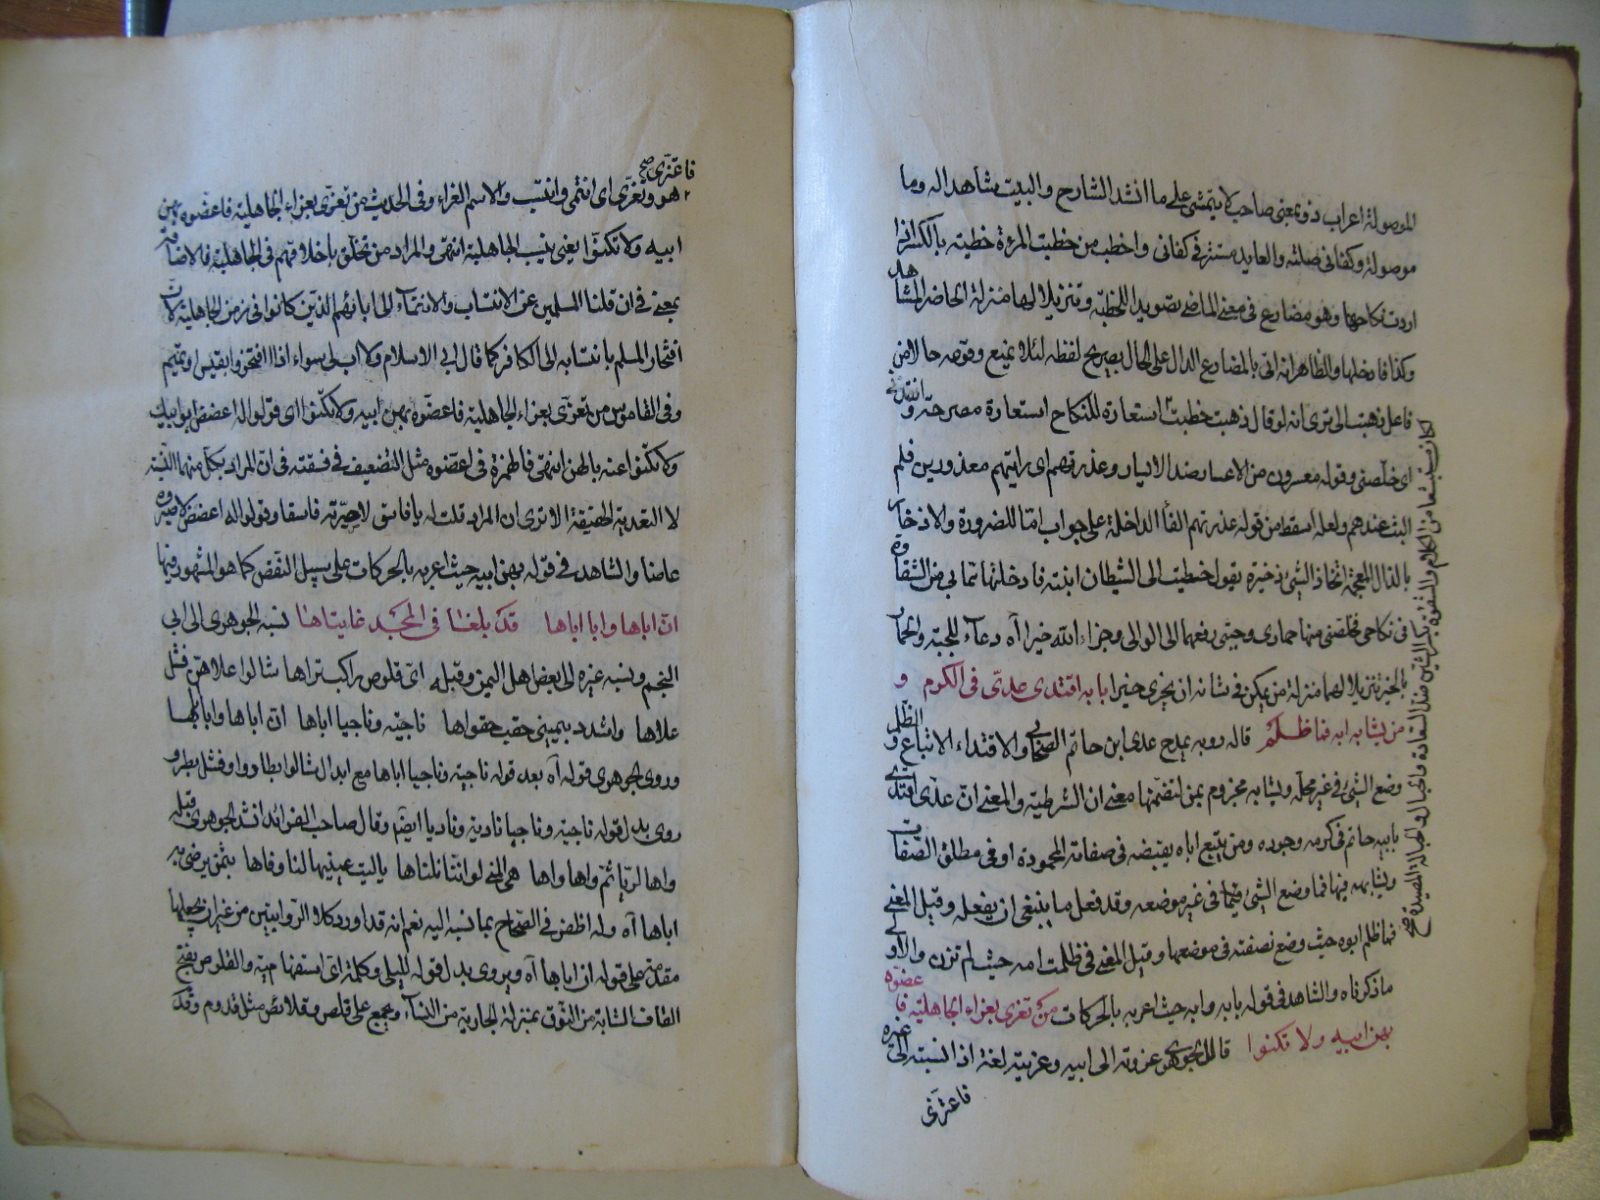 الموصولة اعراب ذو بمعنى صاحب لا يتمشى على ما انشد الشارح والبيت مشاهد اله وما
موصولة وكفانى صلته والعايد مستتر فى كفانى واخطب من خطبت المرءة خطبته بالكسر اذا
اردت نكاحها وهو مضارع فى معنى الماضى تصويرا للخطبة وتنزيلا لها منزلة الحاضر المشاهد
وكذا فادخلها والظاهر انه اتى بالمضارع الدال على الحال بصريح لفظه لئلا يمنع وقوعه حالا من
فاعل ذهبت الى ترى انه لو قال ذهبت خطبت استعارة للنكاح استعارة مصرحة و
اى خلصنى وقوله معسرون من الاعسار ضد الايسار وعذرتهم اى رايتهم معذورين فلم
البث عندهم ولعله اسقط من قوله عذرتهم الفا الداخلة على جواب اما للضرورة والاذخار
بالذال المعجمة اتخاذ الشئ ذخيرة يقول خطبت الى الشيطان ابنته فادخلها من الشقاوة
فى نكاحى فخلصنى منها حمارى وجبتى رفعهما الى الوالى وجزاء الله خيرا آه دعاء للجبة والحمار
بالخير تنزيلا لهما منزلة من يمكن فى شانه ان يجزى خيرا بابه اقتدى عدىّ فى الكرم و
من يشابه ابه فما ظلم قاله روبه يمدح عدى ابن حاتم الصحابى والاقتداء الاتباع والظلم
وضع الشئ فى غير محله ويشابه مجزوم بمن لتضمنها معنى ان الشرطية والمعنى ان عدى اقتدى
بابيه حاتم فى كرمه وجوده ومن يتبع اباه يقتبضه فى صفاته المحمودة او فى مطلق الصفات
ويشابهه فيها فما وضع الشئ فيما فى غير موضعه وقد فعل ما ينبغى ان يفعله وقيل المعنى
فما ظلم ابوه حيث وضع نصفته فى موضعها وقيل المعنى فى ظلمت امه حيث لم تزن والاولى
ماذكرناه والشاهد فى قوله بابه وابه حيث اعربه بالحركات من تعزى بعزاء الجاهلية فاعضوه
بهن ابيه ولا تكنوا قال الجوهرى عزوته الى ابيه وعزيته لغة اذا نسبته الى غيره
فاعتزى
فاعتزى صح
هو وتعزى اى انتمى وانتسب والاسم العزاء وفى الحديث من تعزى بعزاء الجاهلية فاعضوه بهن
ابيه ولا تكنوا يعنى بنسب الجاهلية انتهى والمراد من تخلق باخلاقهم فى الجاهلية فالاضافة
بمعنى فى ان قلنا المسلمين عن الانتساب والانتماء الى ابائهم الذين كانوا فى زمن الجاهلية لان
افتخار المسلم بانتسابه الى الكافر كما قال ابى الاسلام ولا اب لى سواه اذا افتخروا بقيس او تميم
وفى القاموس من تعزى بعزاء الجاهلية فاعضوه بهن ابيه ولا تكنوا اى قولوا له اعضض ابو ابيك
ولا تكنوا عنه بالهن انتهى فالهمزة فى اعضوه مثل التضعيف فى فسقته فى ان المراد بكل منهما النسبة
لا التعدية الحقيقة الا ترى ان المراد قلت له يا فاسق لا صيرته فاسقا وقولوا له اعضض لا صيروه
عاضا والشاهد فى قوله بهن ابيه حيث اعربه بالحركات على سبيل النقص كما هو المشهور فيها
ان اباها وابا اباها قد بلغا فى المجد غايتاها نسبه الجوهرى الى ابى
النجم ونسبه غيره الى بعض اهل اليمن وقبله اى قلوص راكب تراها شالوا علاهن فشل
علاها واشدد بمثنى حقب حقواها ناجية وناجيا اباها ان اباها وابا اباها
وروى الجوهرى قوله آه بعد قوله ناجية وناجيا اباها مع ابدال شالوا بطاروا وفشل بطر و
روى بدل قوله ناجية وناجيا نادية وناديا ايضم وقال صاحب الفوائد انشد الجوهرى قبله
واها لريّا ثم واها واها هى المنى لو اننا نلناها ياليت عينيها لنا وفاها بثمن يرضى به
اباها آه ولم اظفر فى الصحاح بما نسبه اليه نعم انه قد اورد كلا الروايتين من غير ان يجعلها
مقدمة على قوله ان اباها آه ويروى بدل قوله لليلى وكلمة اى استفهامية والقلوص بفتح
القاف الشابة من النوق بمنزلة الجارية من النساء ويجمع على قلص وقلائص مثل قدوم وقدم